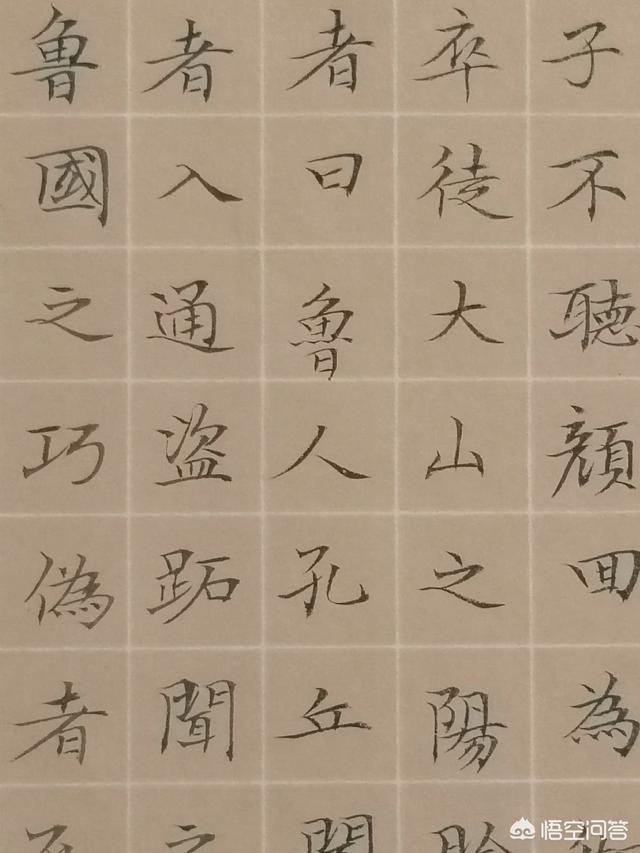 子不聽顏回為
卒徒大山之陽
者曰魯人孔丘聞
者入通盜跖聞之
魯國之巧偽者
悟空问答